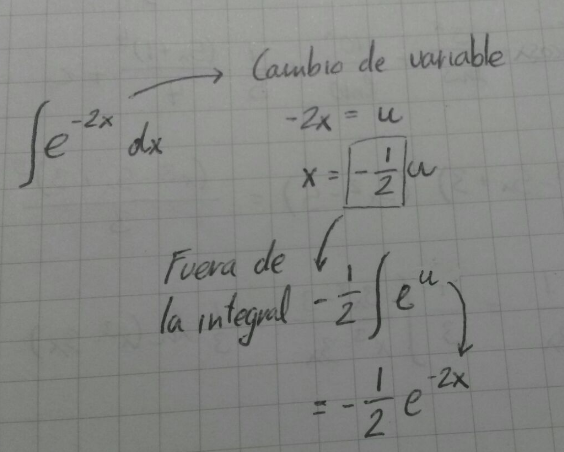 Cambio de variable
∫e^{-2x} dx
-2x = u
x = -1/2 u
Fuera de
la integral -1/2 ∫e^u
= -1/2 e^{-2x}